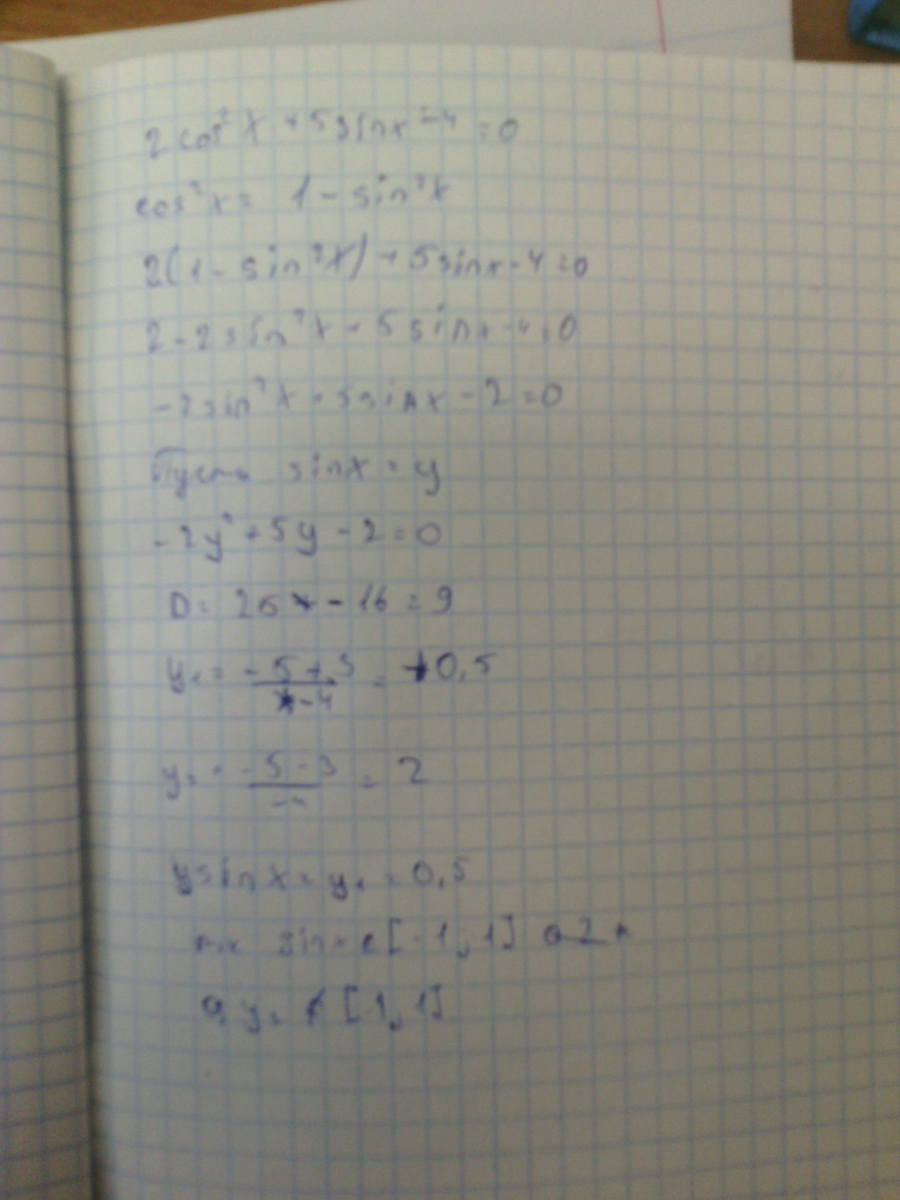 2cos²x + 5sinx - 4 = 0
cos²x = 1 - sin²x
2(1 - sin²x) + 5sinx - 4 = 0
2 - 2sin²x + 5sinx - 4 = 0
-2sin²x + 5sinx - 2 = 0
Пусть sinx = y
-2y² + 5y - 2 = 0
D = 25 - 16 = 9
y₁ = (-5 + 3)/(-4) = 0,5
y₂ = (-5 - 3)/(-4) = 2
sinx = y₁ = 0,5
т.к sin x ∈ [-1, 1]
а y₂ ∉ [-1, 1]